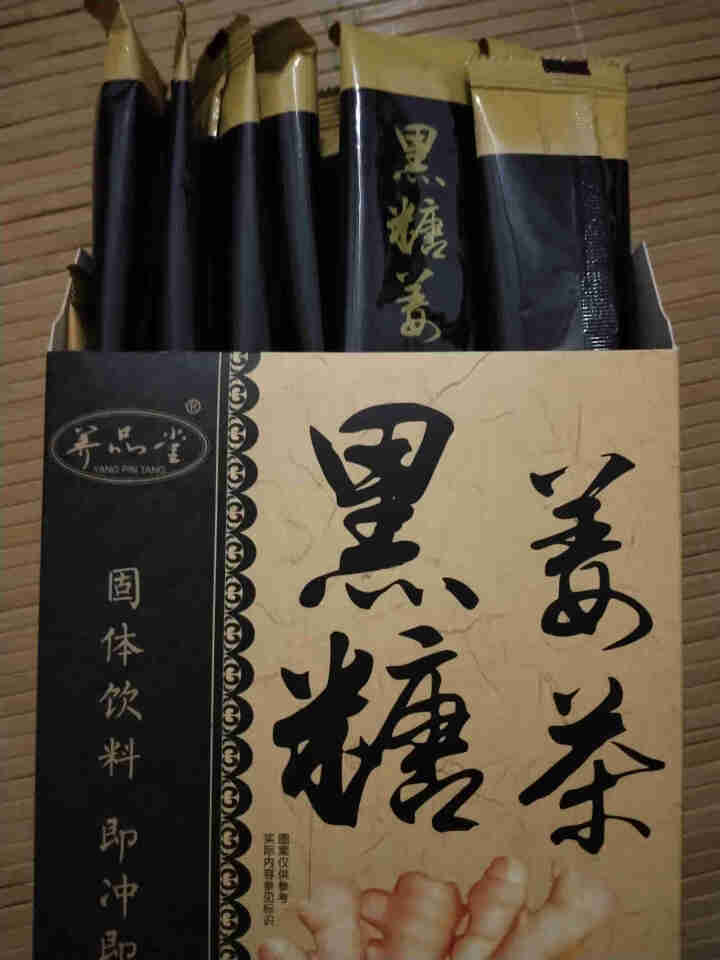 黑糖姜
养品堂®
YANG PIN TANG
黑糖
姜茶
固体饮料 即冲即
图案仅供参考
实际内容参见标识